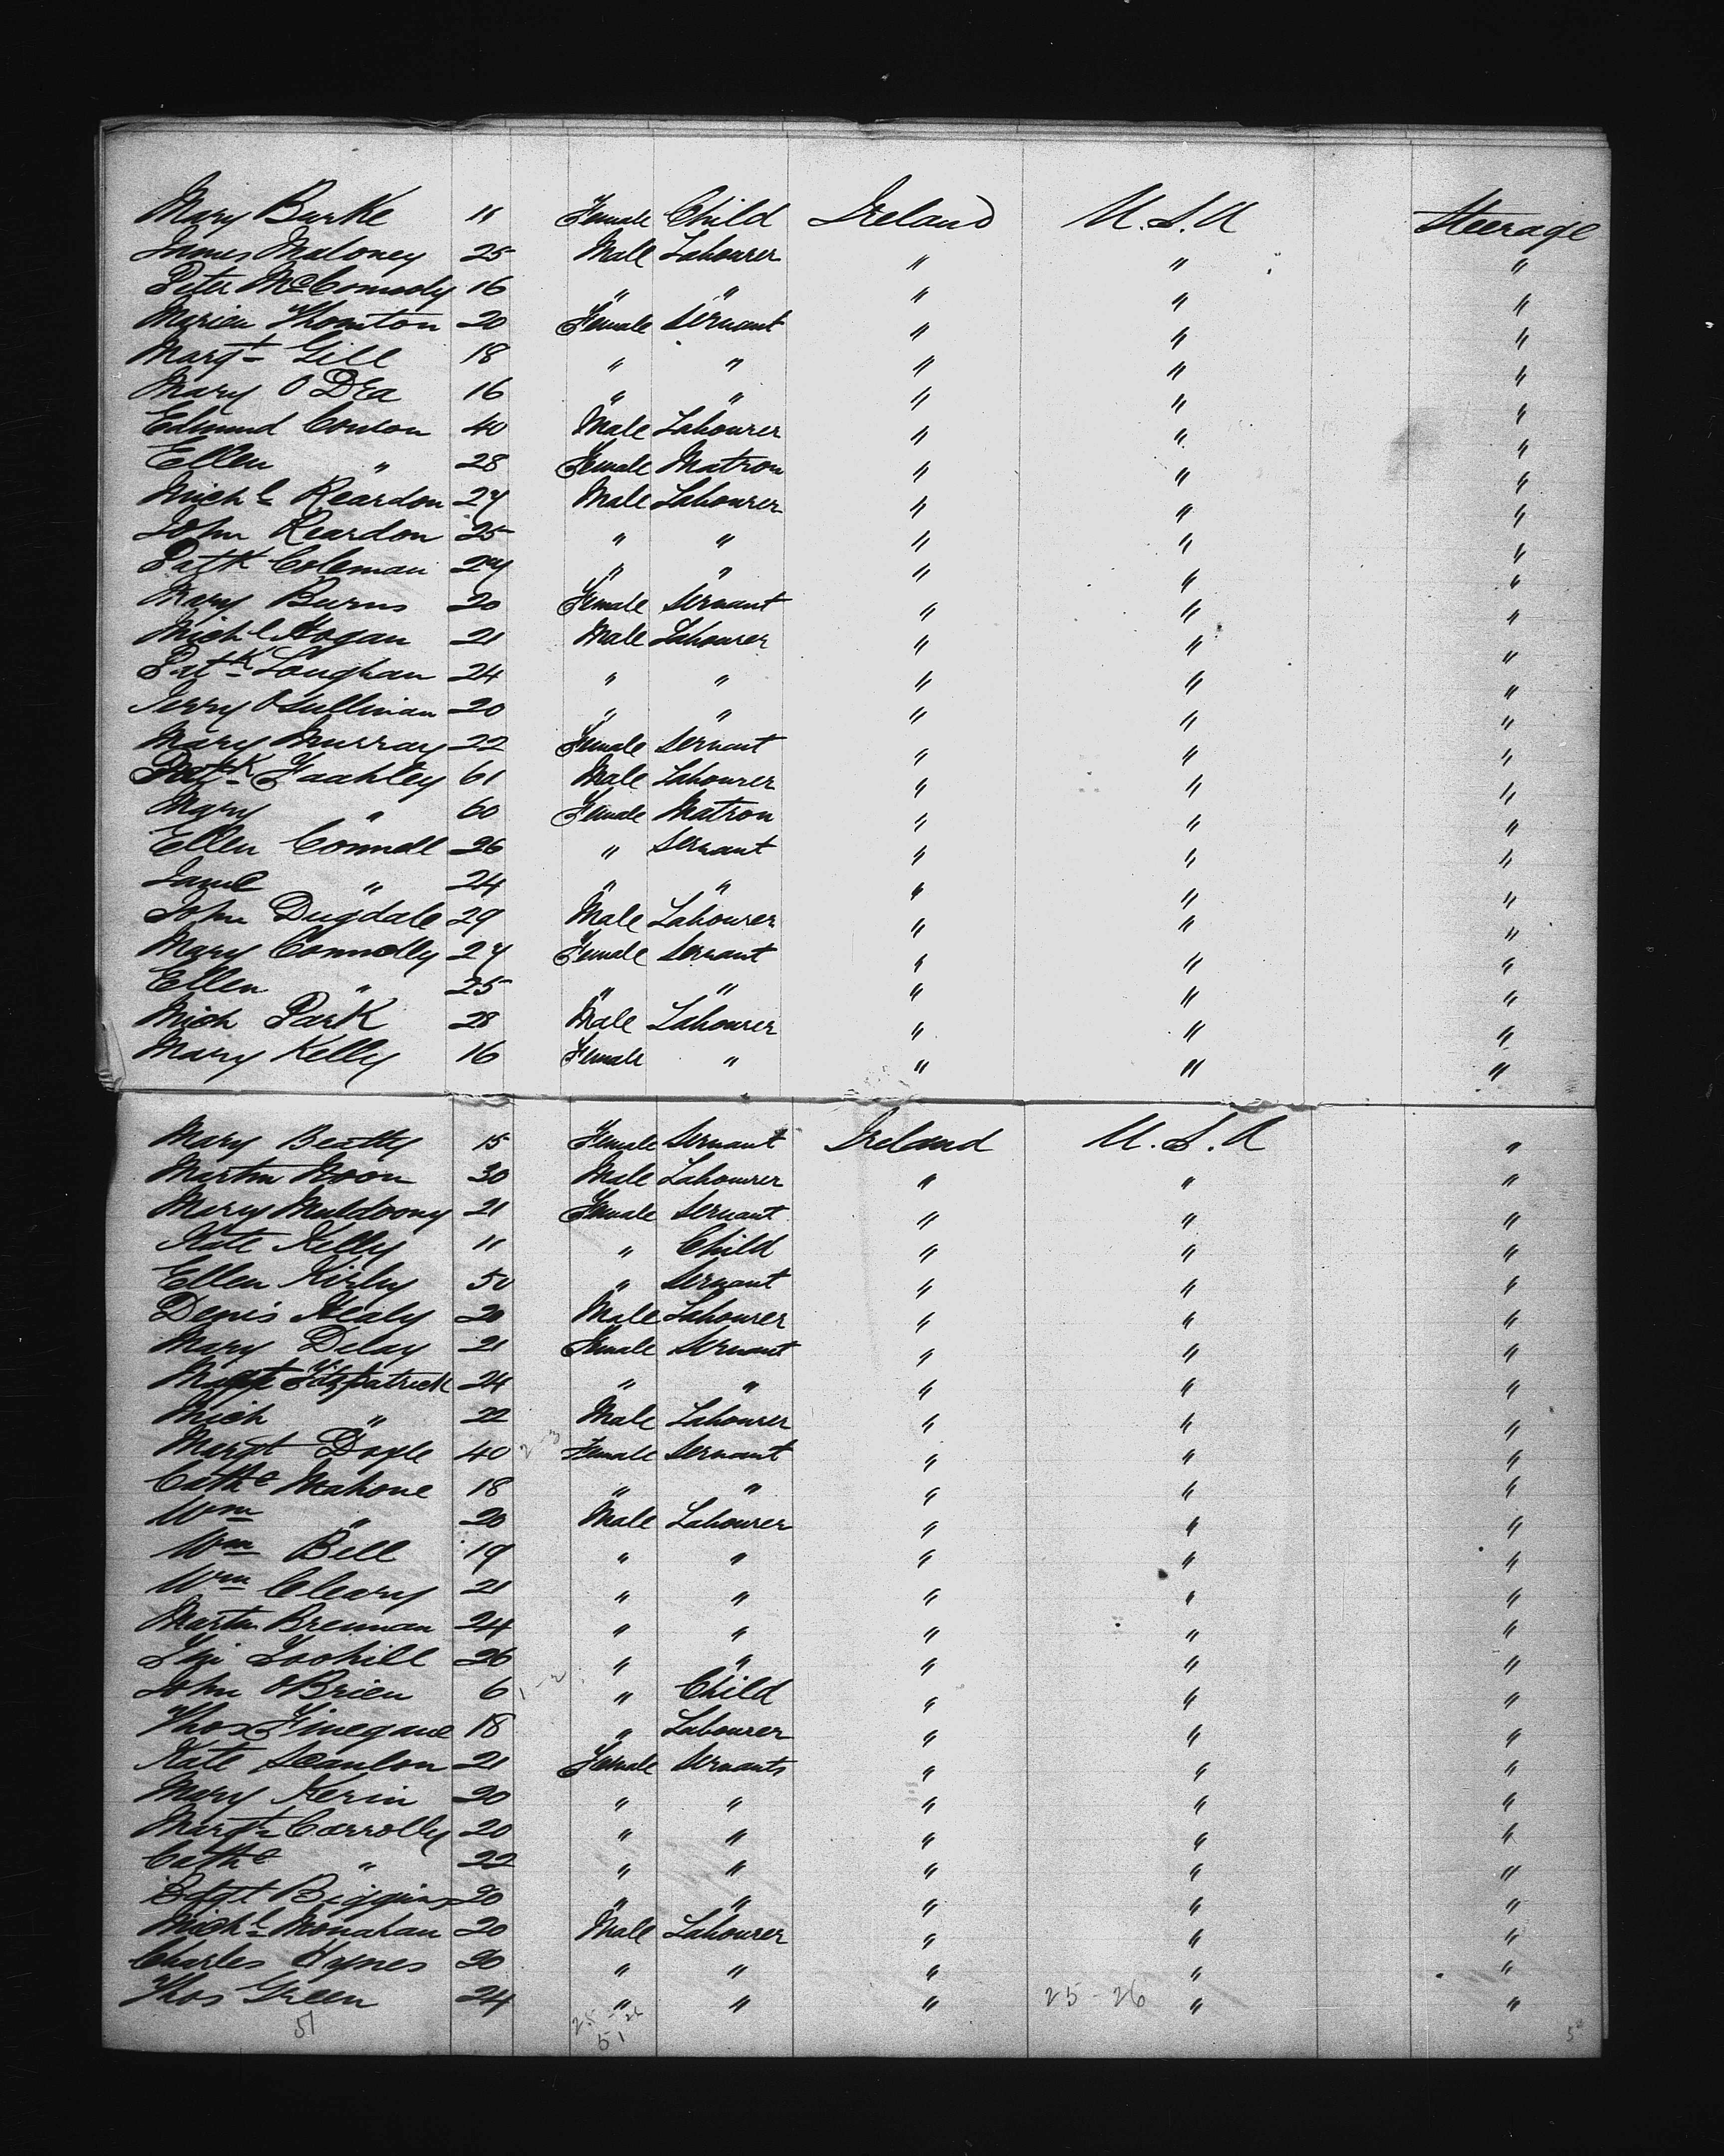 Mary Burke 11 Female Child Ireland U.S.A Steerage
James Maloney 25 Male Labourer " " "
Peter McComedy 16 " " " " "
Maria Thornton 20 Female Servant " " "
Margt Gill 18 " " " " "
Mary O'Dea 16 " " " " "
Edmund Conlon 40 Male Labourer " " "
Ellen " 28 Female Matron " " "
Michl Reardon 24 Male Labourer " " "
John Reardon 25 " " " " "
Patk Coleman 24 " " " " "
Mary Burns 20 Female Servant " " "
Michl Hogan 21 Male Labourer " " "
Patk Loughan 24 " " " " "
Jerry OSullivan 20 " " " " "
Mary Murray 22 Female Servant " " "
Patk Faahley 61 Male Labourer " " "
Mary " 60 Female Matron " " "
Ellen Connell 26 " Servant " " "
Jane " 24 " " " " "
John Dugdale 29 Male Labourer " " "
Mary Connolly 24 Female Servant " " "
Ellen " 25 " " " " "
Mich Park 28 Male Labourer " " "
Mary Kelly 16 Female " " " "
Mary Beatty 15 Female Servant Ireland U.S.A "
Martin Noon 30 Male Labourer " " "
Mary Muldoony 21 Female Servant " " "
Kate Kelly 11 " Child " " "
Ellen Kirby 50 " Servant " " "
Denis Healy 20 Male Labourer " " "
Mary Delay 21 Female Servant " " "
Margt Fitzpatrick 24 " " " " "
Mich " 22 Male Labourer " " "
Margt Doyle 40 2-3 Female Servant " " "
Cathe Mahone 18 " " " " "
Wm " 20 Male Labourer " " "
Wm Bell 19 " " " " "
Wm Cleary 21 " " " " "
Martin Brennan 24 " " " " "
Toohill 26 " " " " "
John OBrien 6 1-2 " Child " " "
Thos Finegane 18 " Labourer " " "
Kate Scanlon 21 Female Servants " " "
Mary Kerin 20 " " " " "
Margt Carrolly 20 " " " " "
Cathe " 22 " " " " "
Bdgt Biggins 20 " " " " "
Michl Monahan 20 Male Labourer " " "
Charles Hynes 20 " " " " "
Thos Green 24 " " " 25-26 " "
51 25-26
51